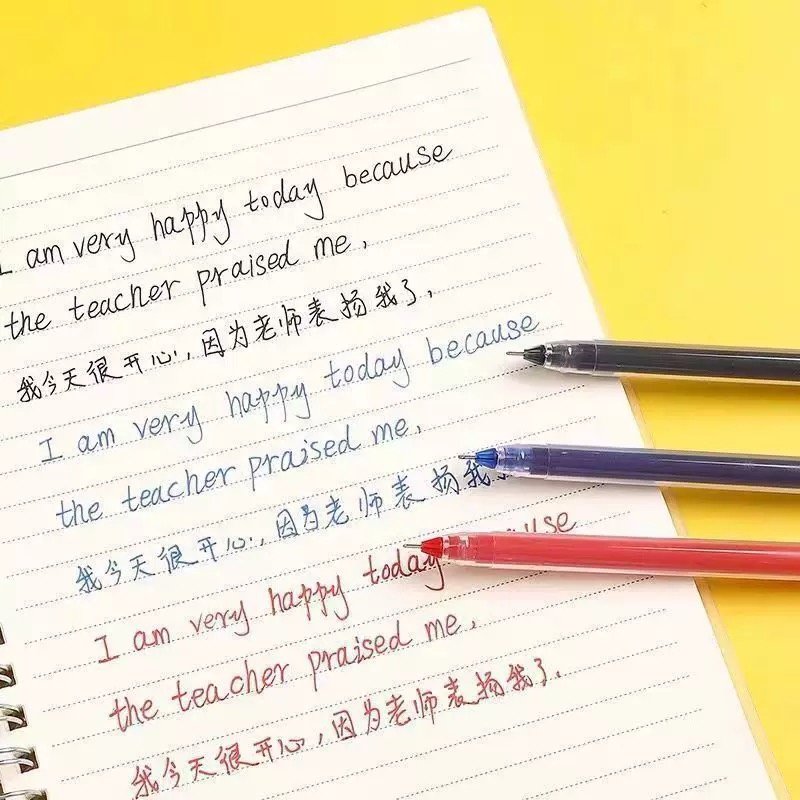 I am very happy today because
the teacher praised me,
我今天很开心,因为老师表扬我了,
I am very happy today because
the teacher praised me,
我今天很开心,因为老师表扬我
I am very happy today
the teacher praised me,
我今天很开心,因为老师表扬我了,